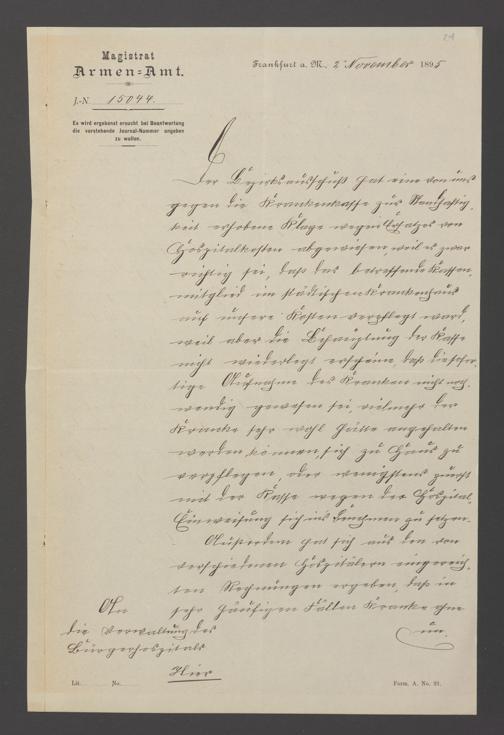 24
Magistrat
Armen=Amt.
Frankfurt a. M., 2 November 1895
J.-N. 15044.
Es wird ergebenst ersucht bei Beantwortung
die vorstehende Journal-Nummer angeben
zu wollen.
Der Bezirksausschuß hat eine von uns
gegen die Krankenkasse zur Standhaftig-
keit erhobene Klage wegen Ersatzes von
Hospitalkosten abgewiesen, weil es zwar
richtig sei, daß das betreffende Kassen-
mitglied im städtischen Krankenhaus
auf unsere Kosten verpflegt ward,
weil aber die Behauptung der Kasse
nicht widerlegt erscheine, daß die
Aufnahme des Kranken nicht noth-
wendig gewesen sei, vielmehr der
Kranke sehr wohl hätte angehalten
werden können, sich zu Haus zu
verpflegen, oder wenigstens zuerst
mit der Kasse wegen der Hospital-
Einweisung sich ins Benehmen zu setzen.
Außerdem hat sich aus den von
verschiedenen Hospitälern eingereich-
ten Rechnungen ergeben, daß in
sehr häufigen Fällen Kranke ohne
An
die Verwaltung des
Bürgerhospitals
Hier
Lit. No.
Form. A. No. 21.